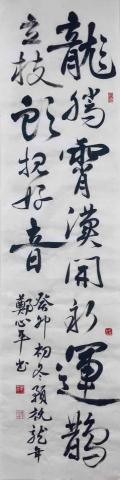 龍騰霄漢開新運鵲
立枝頭抱好音
癸卯初冬預祝龍年
鄭心平书